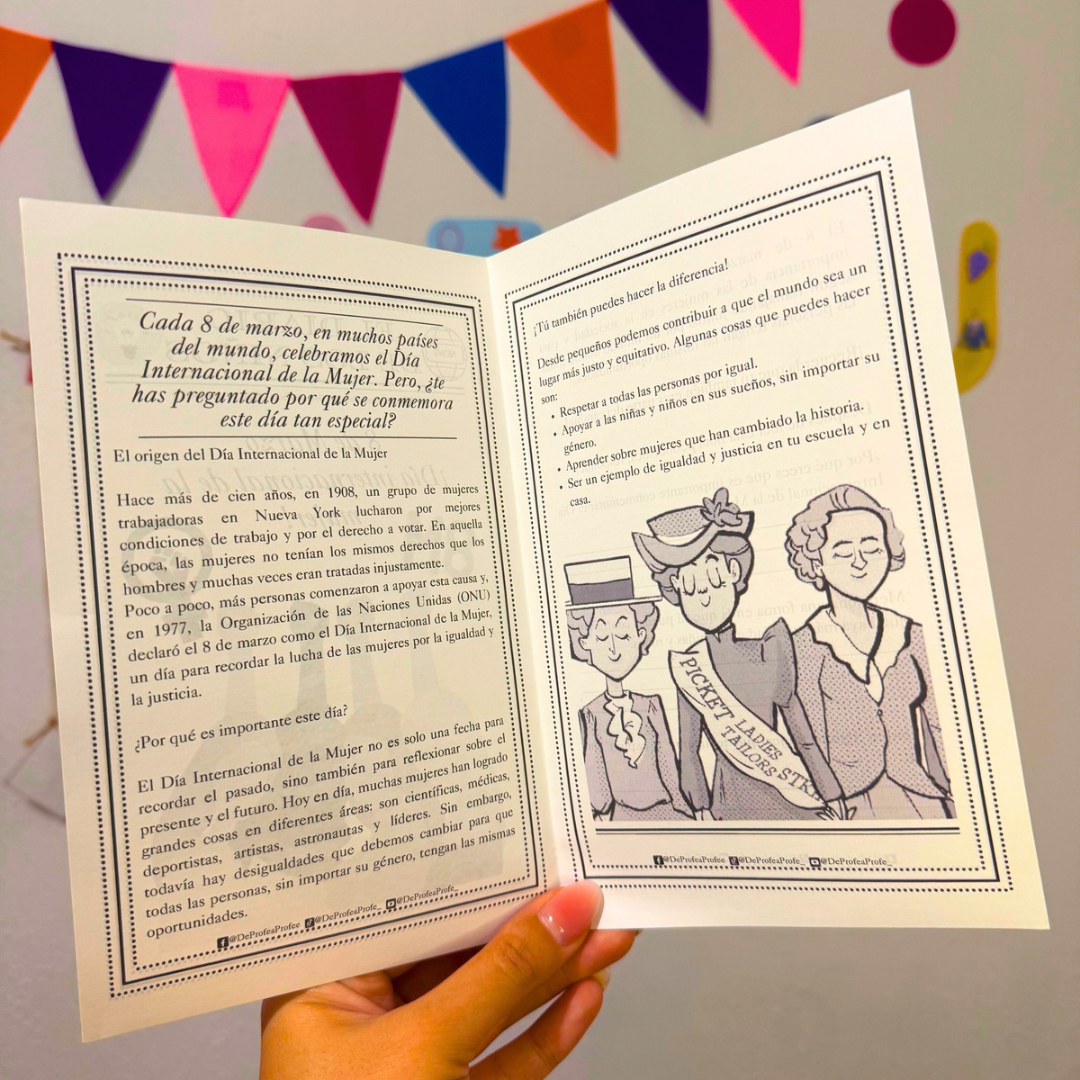 Cada 8 de marzo, en muchos países
del mundo, celebramos el Día
Internacional de la Mujer. Pero, ¿te
has preguntado por qué se conmemora
este día tan especial?
El origen del Día Internacional de la Mujer
Hace más de cien años, en 1908, un grupo de mujeres
trabajadoras en Nueva York lucharon por mejores
condiciones de trabajo y por el derecho a votar. En aquella
época, las mujeres no tenían los mismos derechos que los
hombres y muchas veces eran tratadas injustamente.
Poco a poco, más personas comenzaron a apoyar esta causa y,
en 1977, la Organización de las Naciones Unidas (ONU)
declaró el 8 de marzo como el Día Internacional de la Mujer,
un día para recordar la lucha de las mujeres por la igualdad y
la justicia.
¿Por qué es importante este día?
El Día Internacional de la Mujer no es solo una fecha para
recordar el pasado, sino también para reflexionar sobre el
presente y el futuro. Hoy en día, muchas mujeres han logrado
grandes cosas en diferentes áreas: son científicas, médicas,
deportistas, artistas, astronautas y líderes. Sin embargo,
todavía hay desigualdades que debemos cambiar para que
todas las personas, sin importar su género, tengan las mismas
oportunidades.
@DeProfeaProfee @DeProfeaProfe_ @DeProfeaProfe_
¡Tú también puedes hacer la diferencia!
Desde pequeños podemos contribuir a que el mundo sea un
lugar más justo y equitativo. Algunas cosas que puedes hacer
son:
• Respetar a todas las personas por igual.
• Apoyar a las niñas y niños en sus sueños, sin importar su
género.
• Aprender sobre mujeres que han cambiado la historia.
• Ser un ejemplo de igualdad y justicia en tu escuela y en
casa.
PICKET LADIES
TAILORS STR
@DeProfeaProfee @DeProfeaProfe_ @DeProfeaProfe_